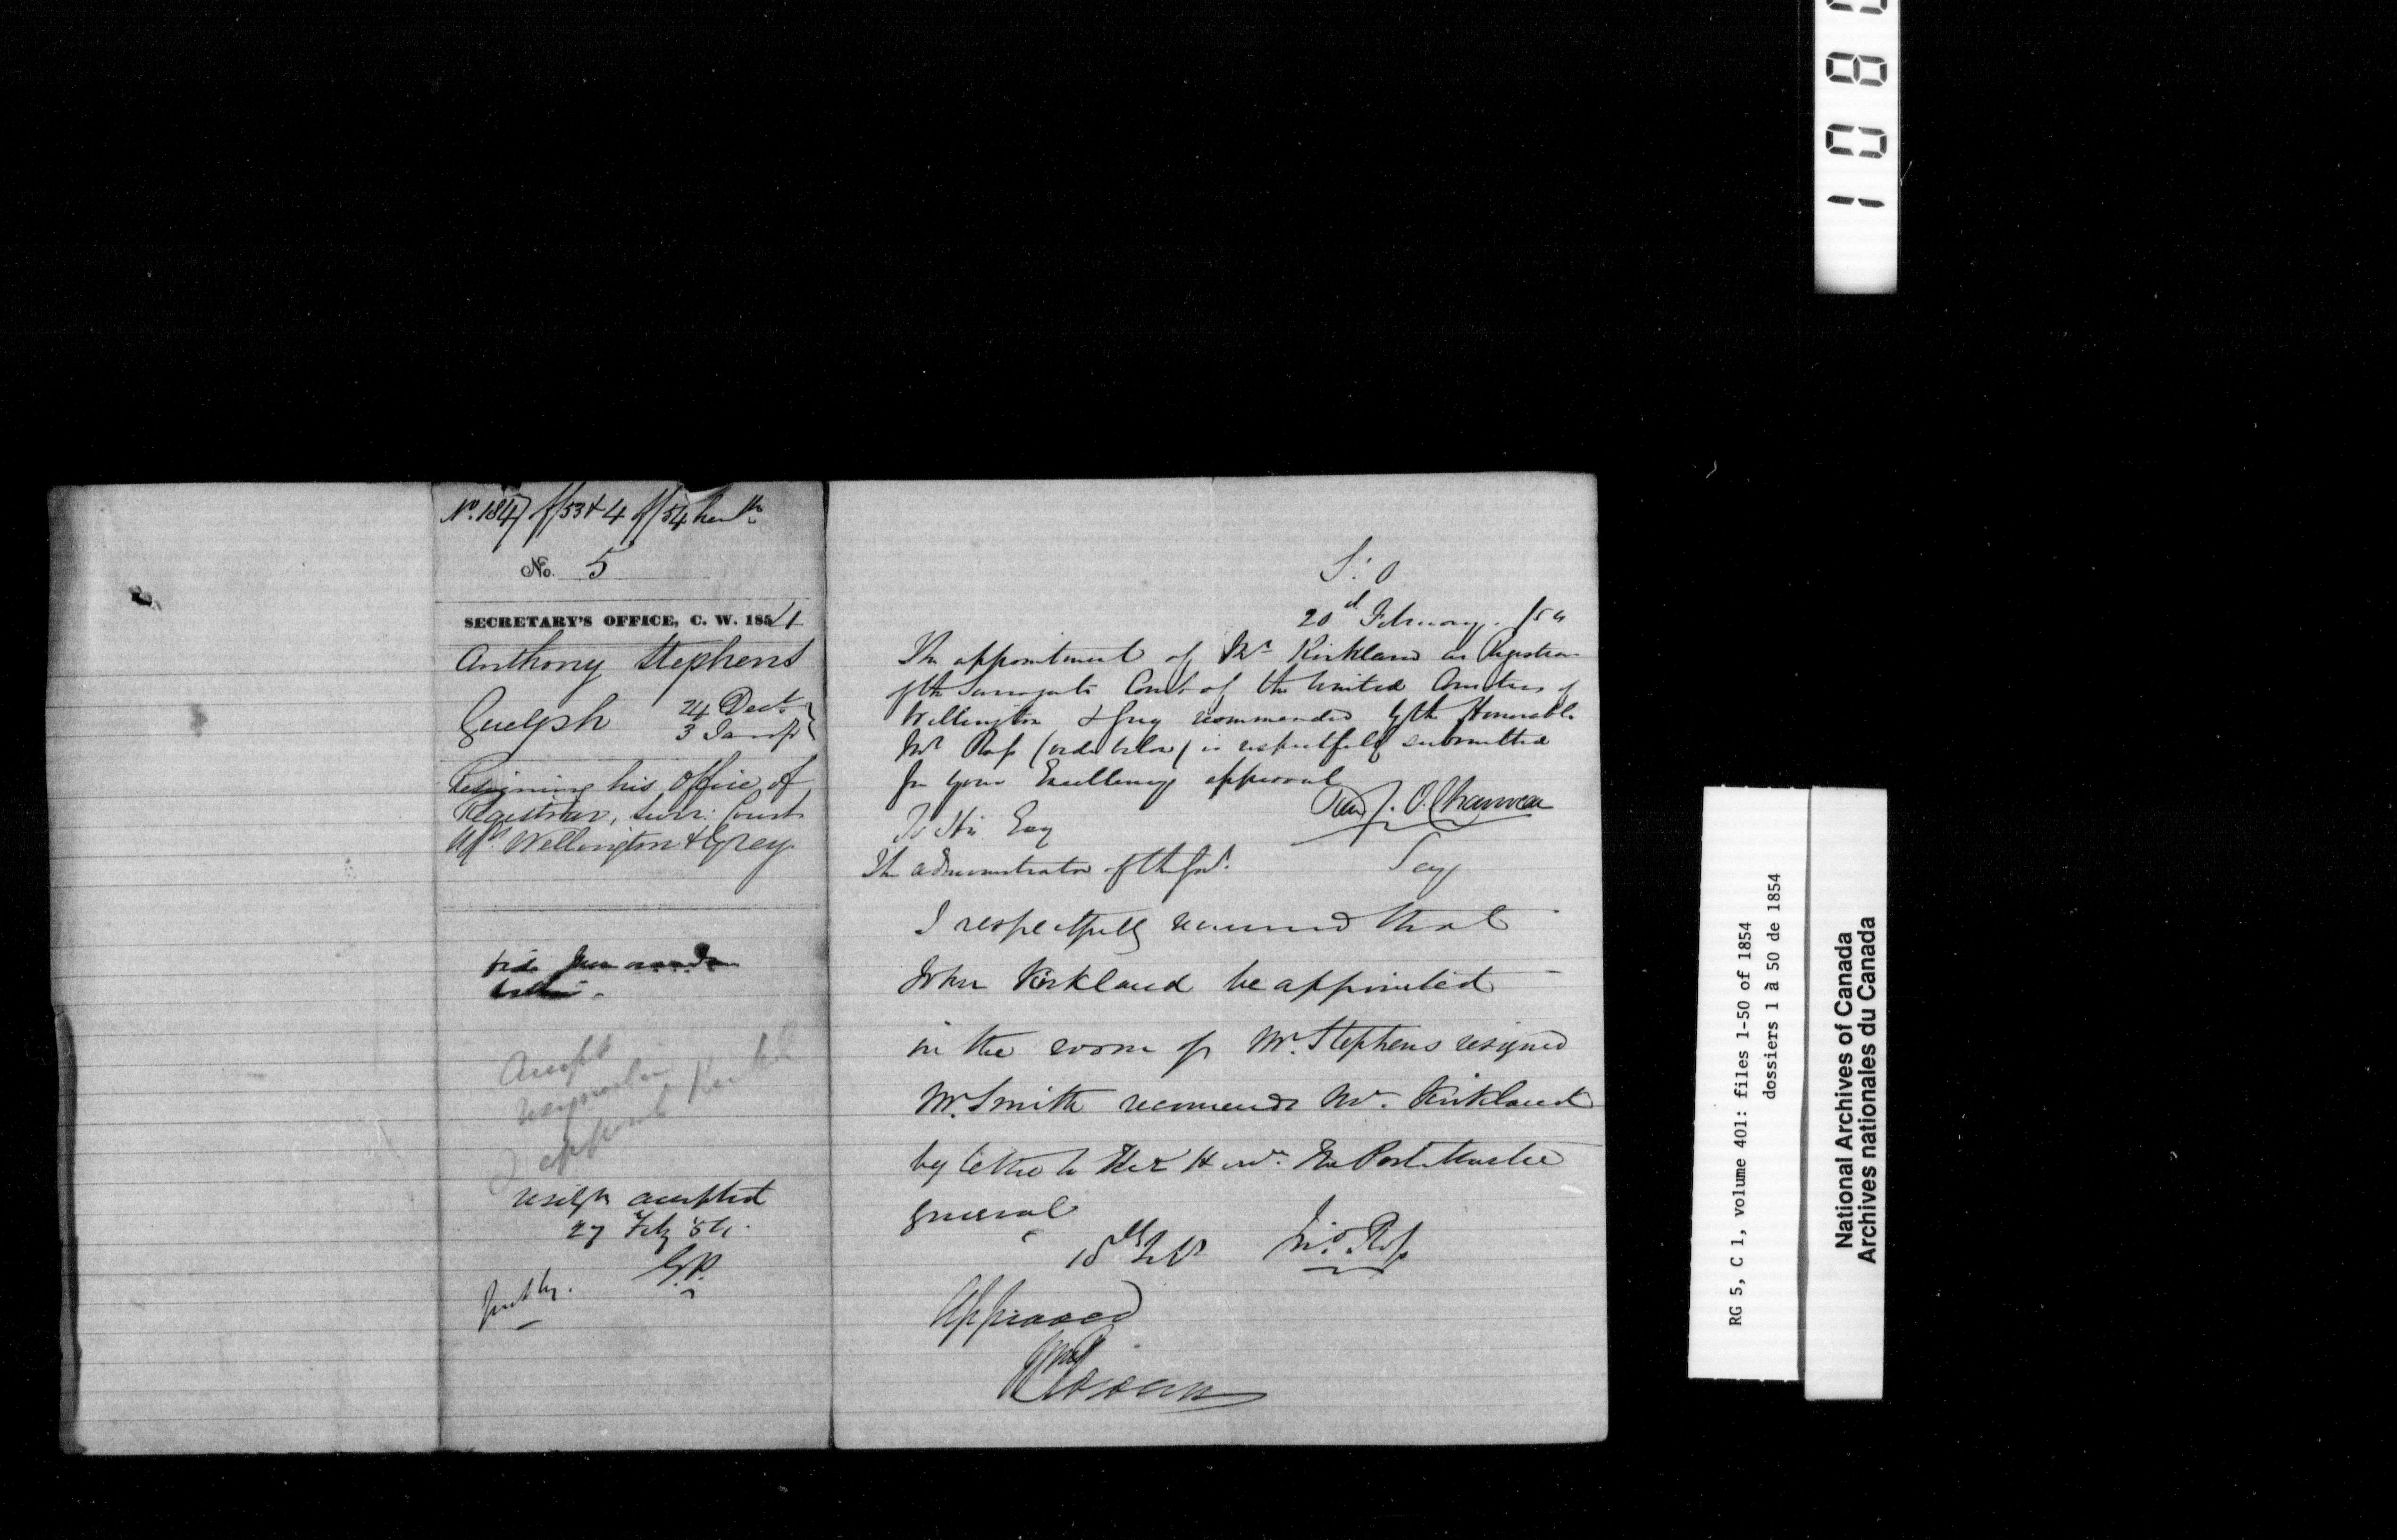 No. 1847 of/53 & 4 of/54
No. 5
SECRETARY'S OFFICE, C. W. 1854
Anthony Stephens
Guelph 24 Decr.
3 Jan
Resigning his office of
Registrar, Surr: Court
Wellington & Grey
Accept
resignation
appoint
resign accepted
27 Feby 54.
S: O
20th February. /54
The appointment of Mr Kirkland as Registrar
of the Surrogate Court of the United Counties of
Wellington & Grey recommended by the Honorable
Mr Ross (vide below) is respectfully submitted
for your Excellency's approval
Pierre J. O. Chauveau
To His Excy
The administrator of the Govt.
Secy
I respectfully recommend that
John Kirkland be appointed
in the room of Mr. Stephens resigned
Mr. Smith recommends Mr. Kirkland
by letter to the Honr. the Post Master
general
18th Feb
Jno. Ross
Approved
Rowan
1 0 8
RG 5, C 1, volume 401: files 1-50 of 1854
dossiers 1 à 50 de 1854
National Archives of Canada
Archives nationales du Canada